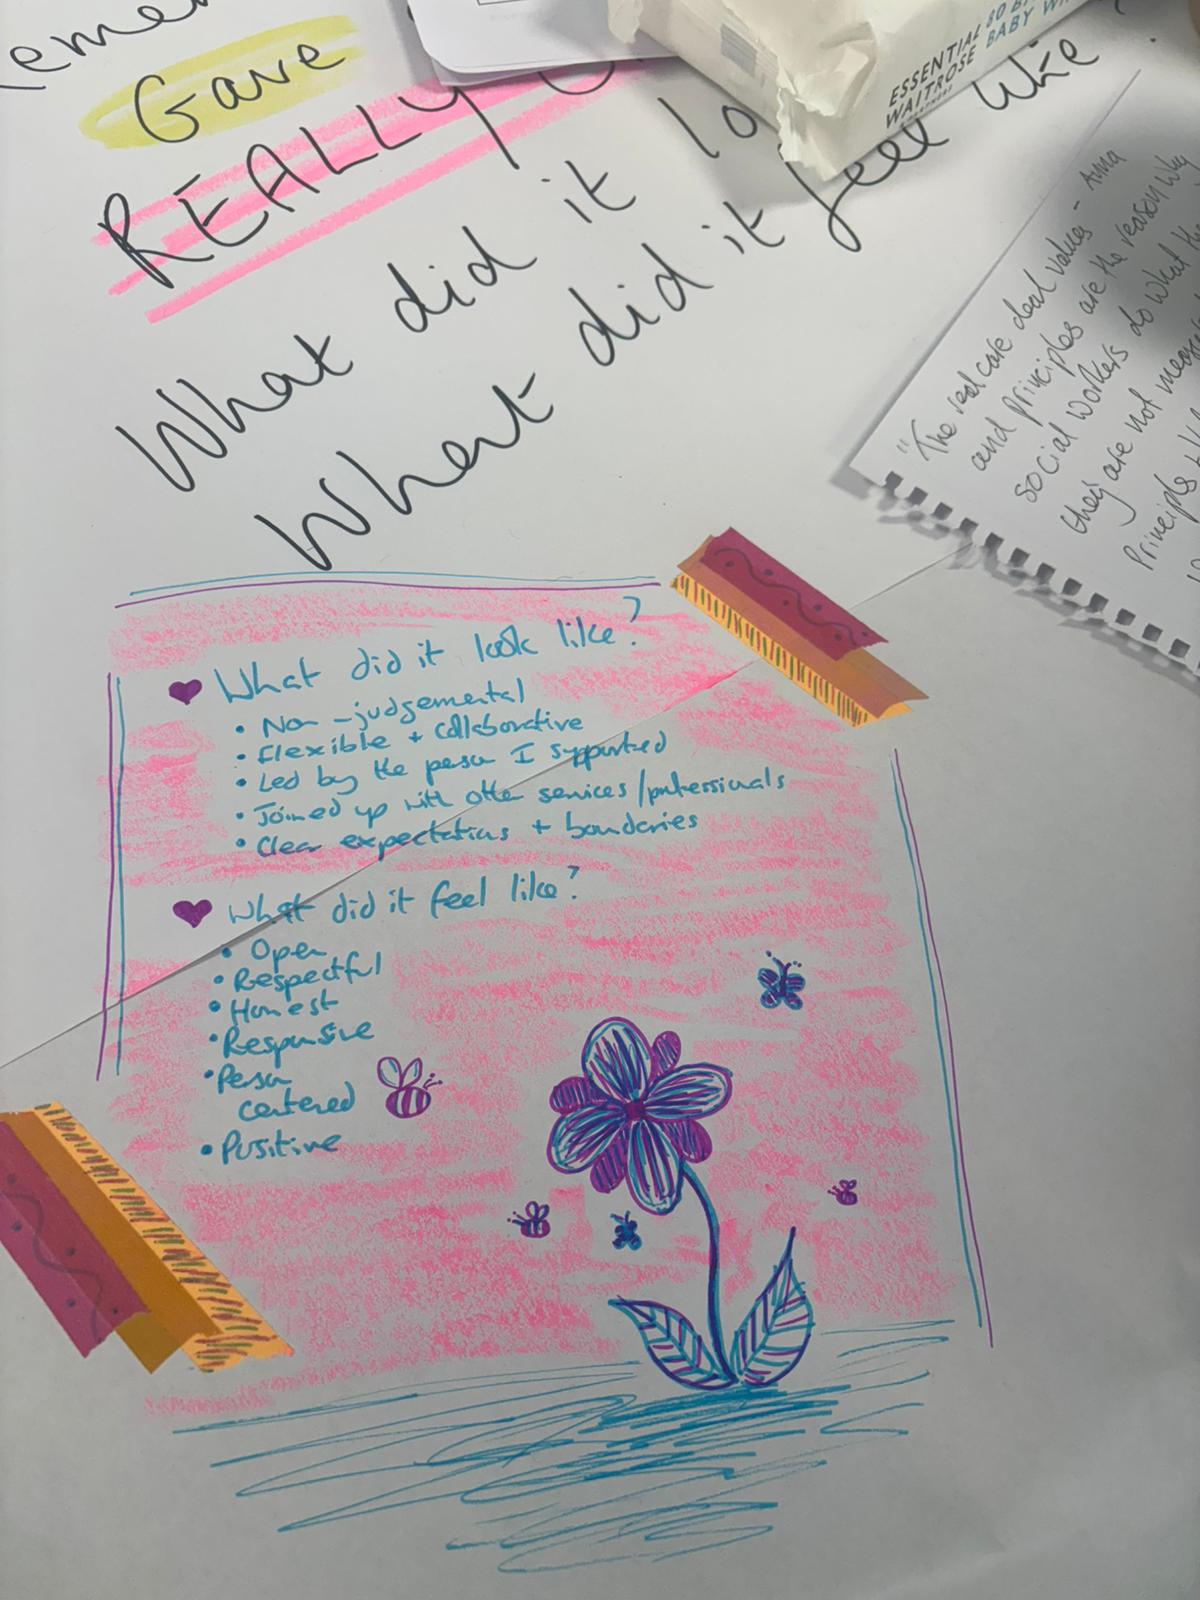 Gave
REALLY
What did it lo
What did it feel like
ESSENTIAL
WAITROSE
80 B
BABY WI
"The real core deal values - Anna
and principles are the reason why
social workers do what
they are not
Principles
♥ What did it look like?
• Non-judgemental
• Flexible + collaborative
• Led by the person I supported
• Joined up with other services/professionals
• Clear expectations + boundaries
♥ What did it feel like?
• Open
• Respectful
• Honest
• Responsive
• Person
centered
• Positive